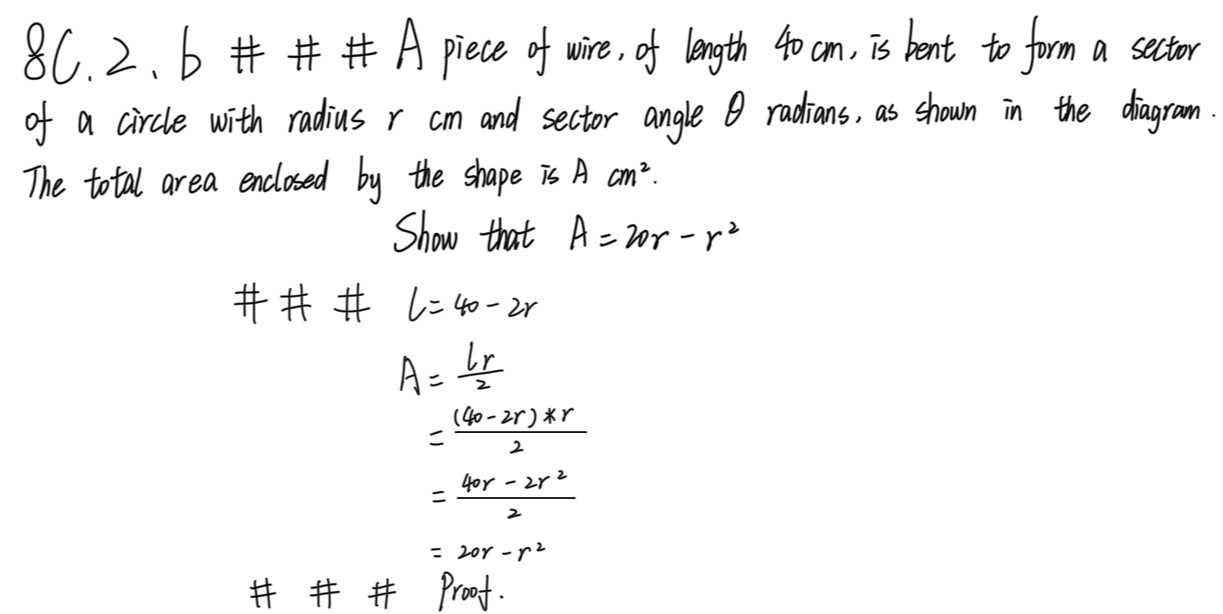 8C.2.b # # # A piece of wire, of length 40 cm, is bent to form a sector
of a circle with radius r cm and sector angle θ radians, as shown in the diagram.
The total area enclosed by the shape is A cm².
Show that A = 20r - r²
# # # l = 40 - 2r
A = lr/2
= (40-2r)*r/2
= 40r - 2r²/2
= 20r - r²
# # # Proof.